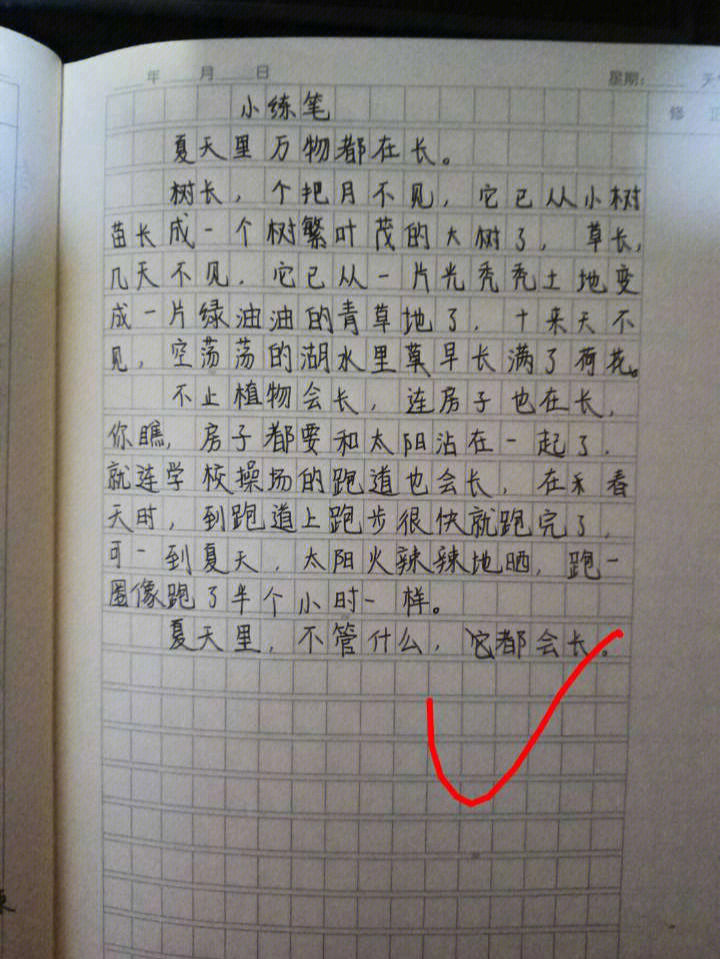 年 月 日 星期: 天
修 正
小练笔
夏天里万物都在长。
树长，个把月不见，它已从小树
苗长成一个树繁叶茂的大树了，草长，
几天不见，它已从一片光秃秃土地变
成一片绿油油的青草地了，十来天不
见，空荡荡的湖水里早长满了荷花。
不止植物会长，连房子也在长，
你瞧，房子都要和太阳沾在一起了，
就连学校操场的跑道也会长，在春
天时，到跑道上跑步很快就跑完了，
可一到夏天，太阳火辣辣地晒，跑一
圈像跑了半个小时一样。
夏天里，不管什么，它都会长。